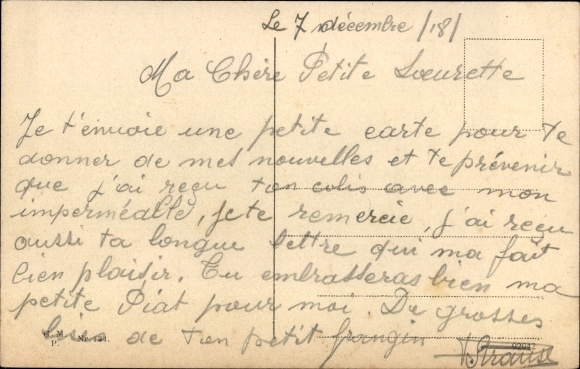 Le 7 décembre /18/
Ma Chère Petite Soeurette
Je t'envoie une petite carte pour te
donner de mes nouvelles et te prévenir
que j'ai reçu ton colis avec mon
imperméable, je te remercie, j'ai reçu
aussi ta longue lettre qui ma fait
bien plaisir. Tu embrasseras bien ma
petite Piat pour moi. De grosses
bises de ton petit frangin